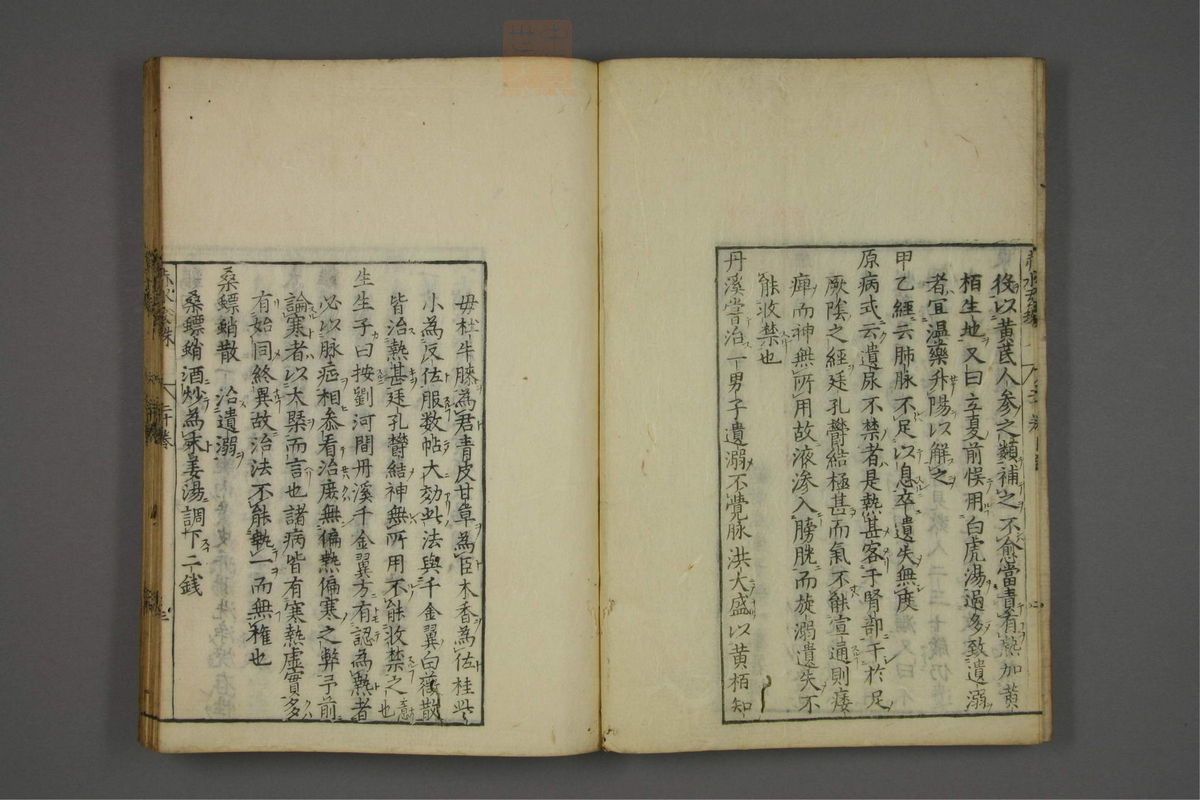 後以黄芪人参之類補之不愈當責有熱加黄
栢生地又曰立夏前悮用白虎湯過多致遺溺
者宜温藥升陽以解之
甲乙經云肺脉不足以息卒遺失無度
原病式云遺尿不禁者是熱甚客于腎部干於足
厥陰之經廷孔鬱結極甚而氣不能宣通則痿
痺而神無所用故液滲入膀胱而旋溺遺失不
能收禁也
丹溪嘗治一男子遺溺不覺脉洪大盛以黄栢知
毋杜牛膝為君青皮甘草為臣木香為佐桂些
小為反佐服数帖大効此法與千金翼白薇散
皆治熱甚廷孔鬱結神無所用不能收禁之意也
生生子曰按劉河間丹溪千金翼方有認為熱者
必以脉症相叅看治庶無偏熱偏寒之弊予前
論寒者以大槩而言也諸病皆有寒熱虛實多
有始同終異故治法不能執一而無權也
桑螵蛸散 治遺溺
桑螵蛸酒炒為末姜湯調下二錢
赤水玄珠
二十卷